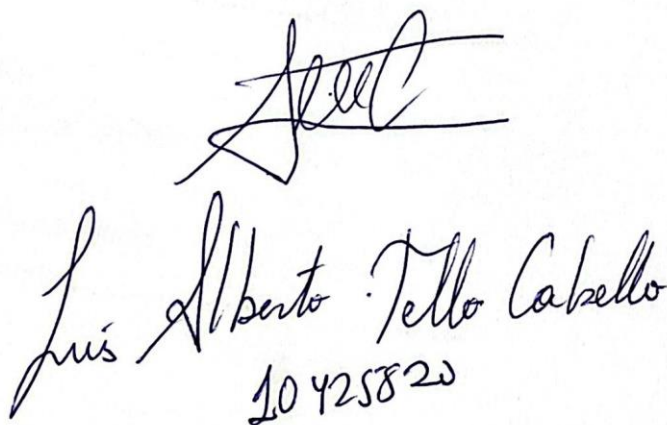 Luis Alberto Tello Cabello
10425820